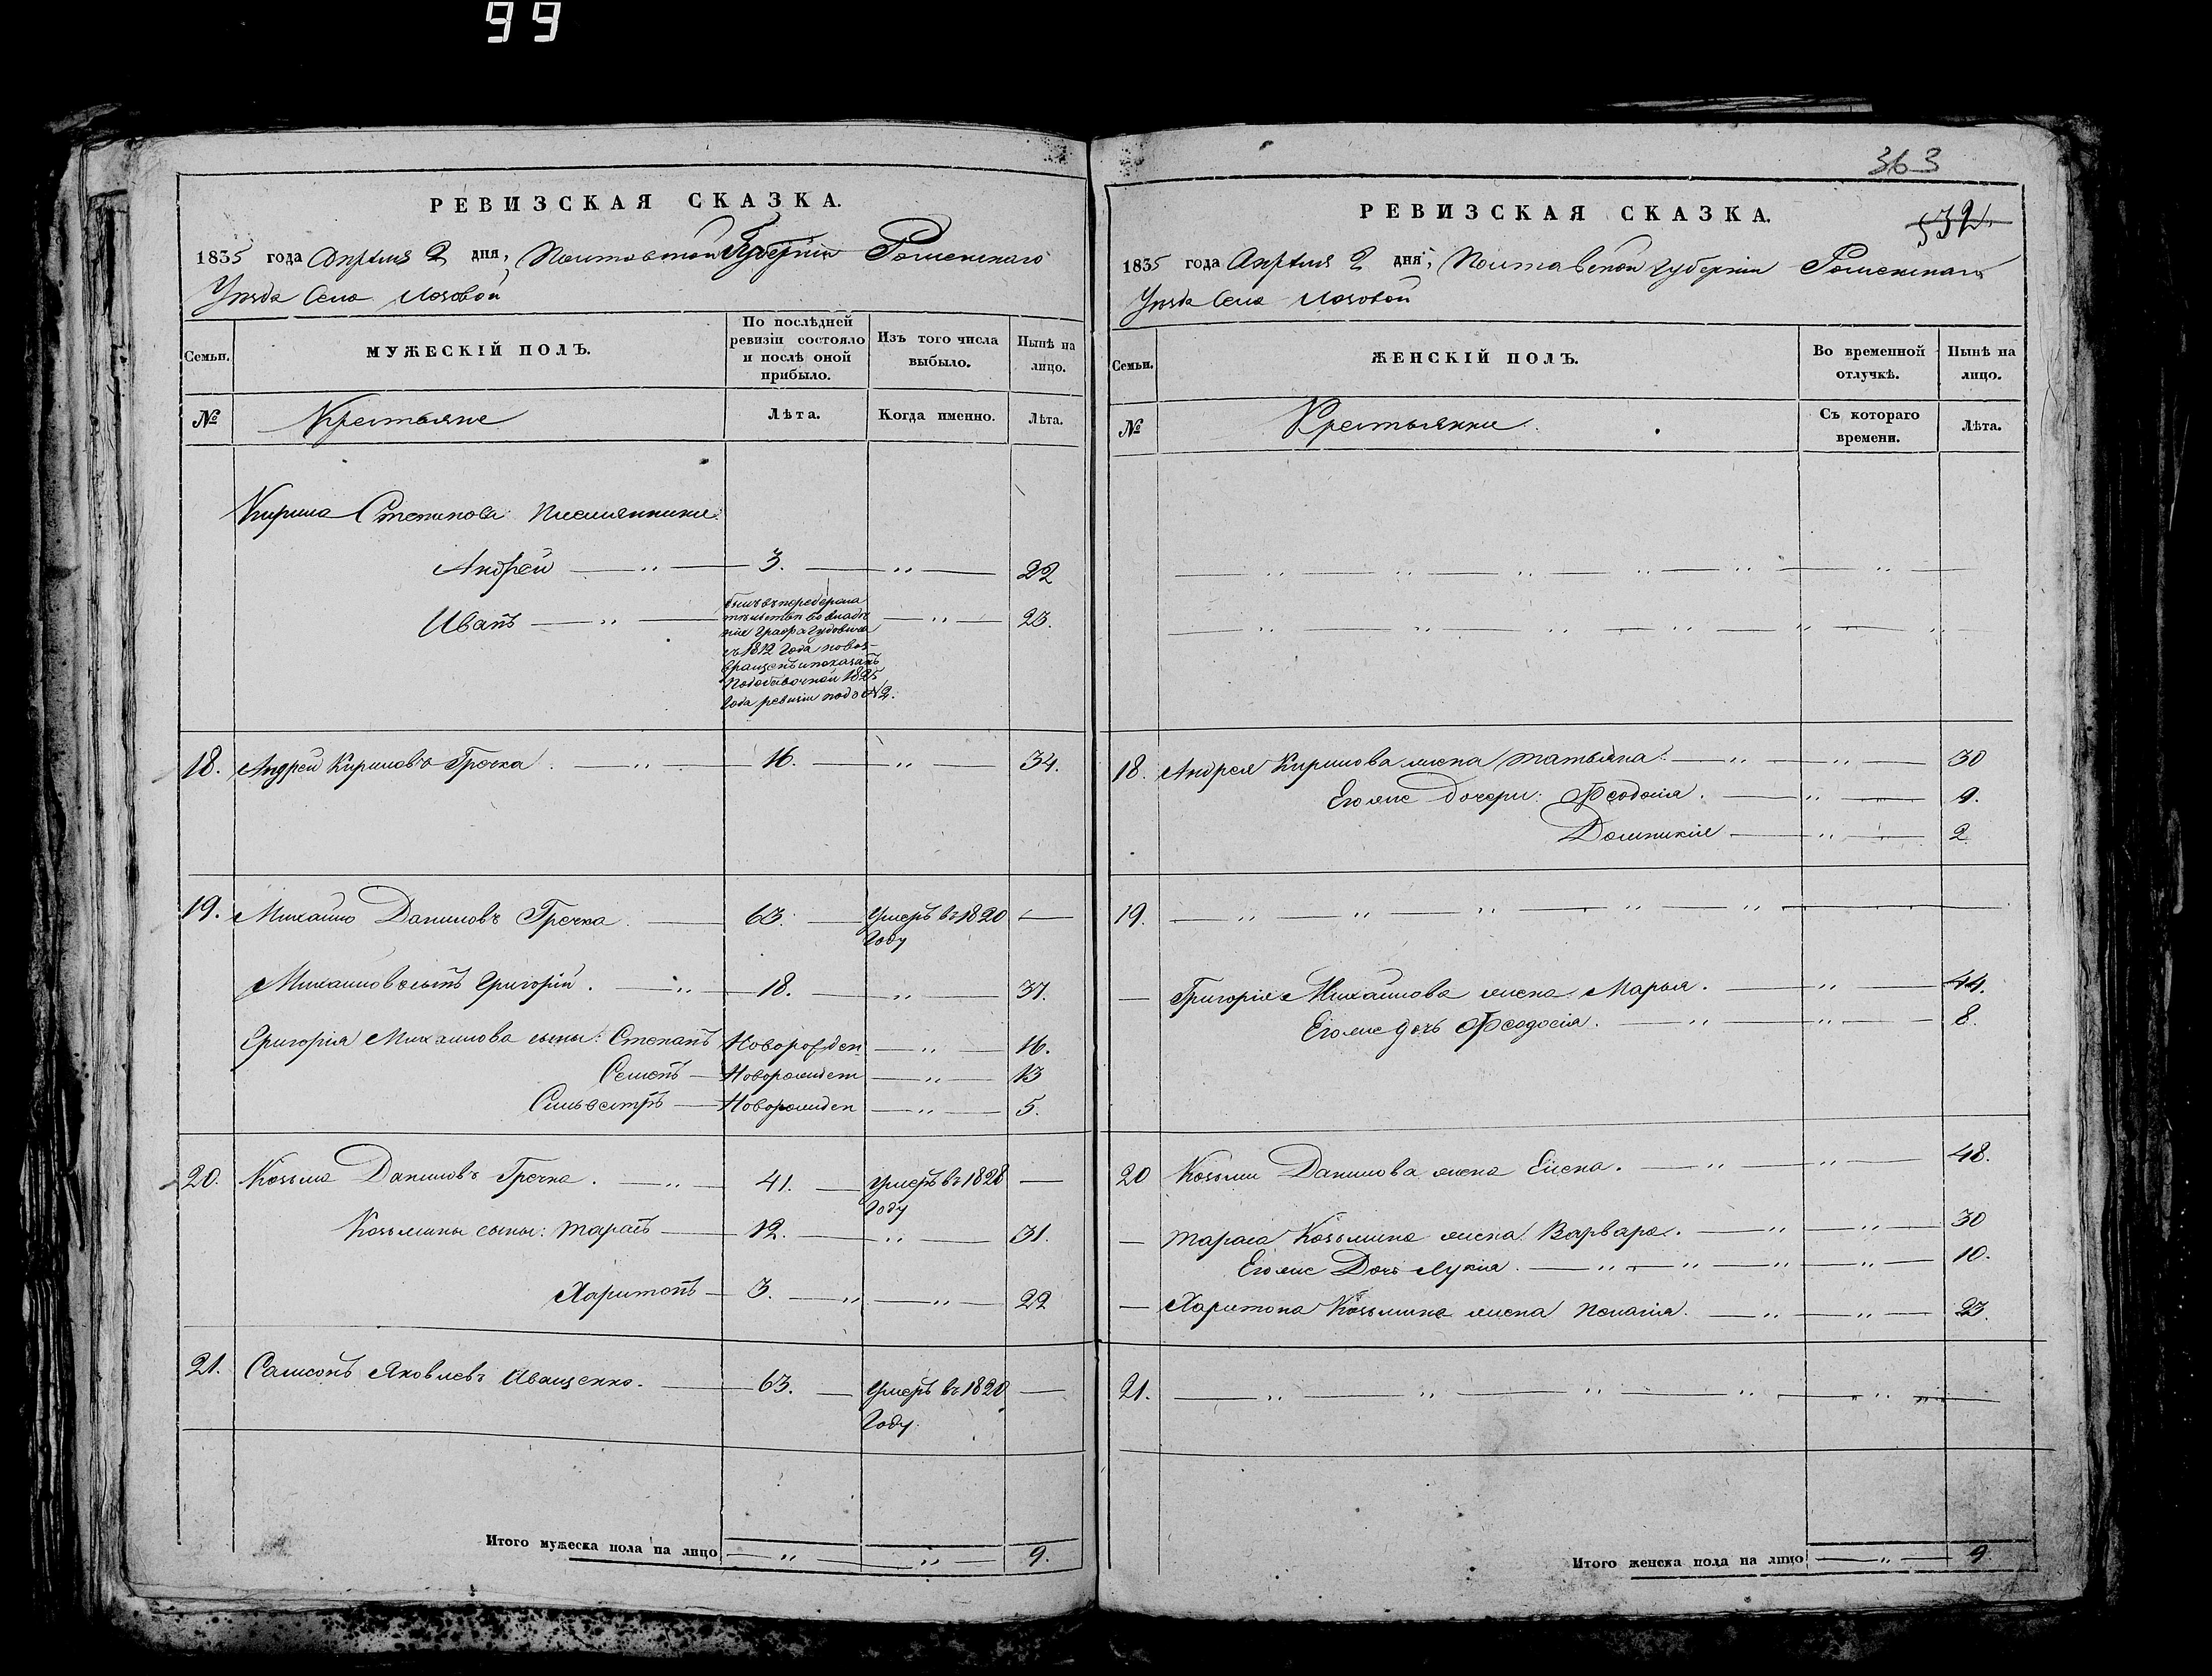 99
РЕВИЗСКАЯ СКАЗКА.
1835 года Апреля 2 дня, Полтавской Губерніи Роменскаго
Уезда Села Лозовой
Семьи. МУЖЕСКІЙ ПОЛЪ. По послѣдней ревизіи состояло и послѣ оной прибыло. Изъ того числа выбыло. Нынѣ на лицо.
№ Крестьяне Лѣта. Когда именно. Лѣта.
Кирила Степанова племянники:
Андрей — " — 3. — " — 22
Иванъ — " — — " — 23.
былъ въ
во владѣ
ніе Графа Гудовича
съ 1812 года повоз-
вращенъ и показанъ
1825
года ревизіи подъ №2.
18. Андрей Кириловъ Гречка. — " — 16. — " — 34.
19. Михайло Даниловъ Гречка. — 63. — умеръ въ 1820 —
Году
Михайловъ сынъ Григорій. — " — 18. — " — 37.
Григорія Михайлова сыны: Степанъ Новорожден — " — 16.
Семенъ — Новорожден — " — 13
Сильвестръ — Новорожден — " — 5.
20. Козьма Даниловъ Гречка. — " — 41. — умеръ въ 1828 —
Году
Козьмины сыны: Тарасъ — 12. — " — 31.
Харитонъ — 3. — " — " — 22
21. Самсонъ Яковлевъ Иващенко. — 63. — умеръ въ 1820 —
Году.
Итого мужеска пола на лицо — " — — " — 9.
363
532
РЕВИЗСКАЯ СКАЗКА.
1835 года Апреля 2 дня, Полтавской губерніи Роменскаго
Уезда Села Лозовой
Семьи. ЖЕНСКІЙ ПОЛЪ. Во временной отлучкѣ. Нынѣ на лицо.
№ Крестьянки. Съ котораго времени. Лѣта.
18. Андрея Кирилова жена Татьяна. — " — " — 30
Его же дочери: Феодосія. — " — 9.
Домникія — " — 2
19. — " — " — " — " — " —
— Григорія Михайлова жена Марья. — " — 44.
Его же дочь Феодосія. — " — " — 8.
20 Козьмы Данилова жена Елена. — " — " — 48.
— Тараса Козьмина жена Варвара. — " — " — 30
Его же Дочь Лукія. — " — " — " — " — 10.
— Харитона Козьмина жена Пелагія. — " — " — 23.
21. — " — " — " — " — " — " —
Итого женска пола на лицо — " — 9.